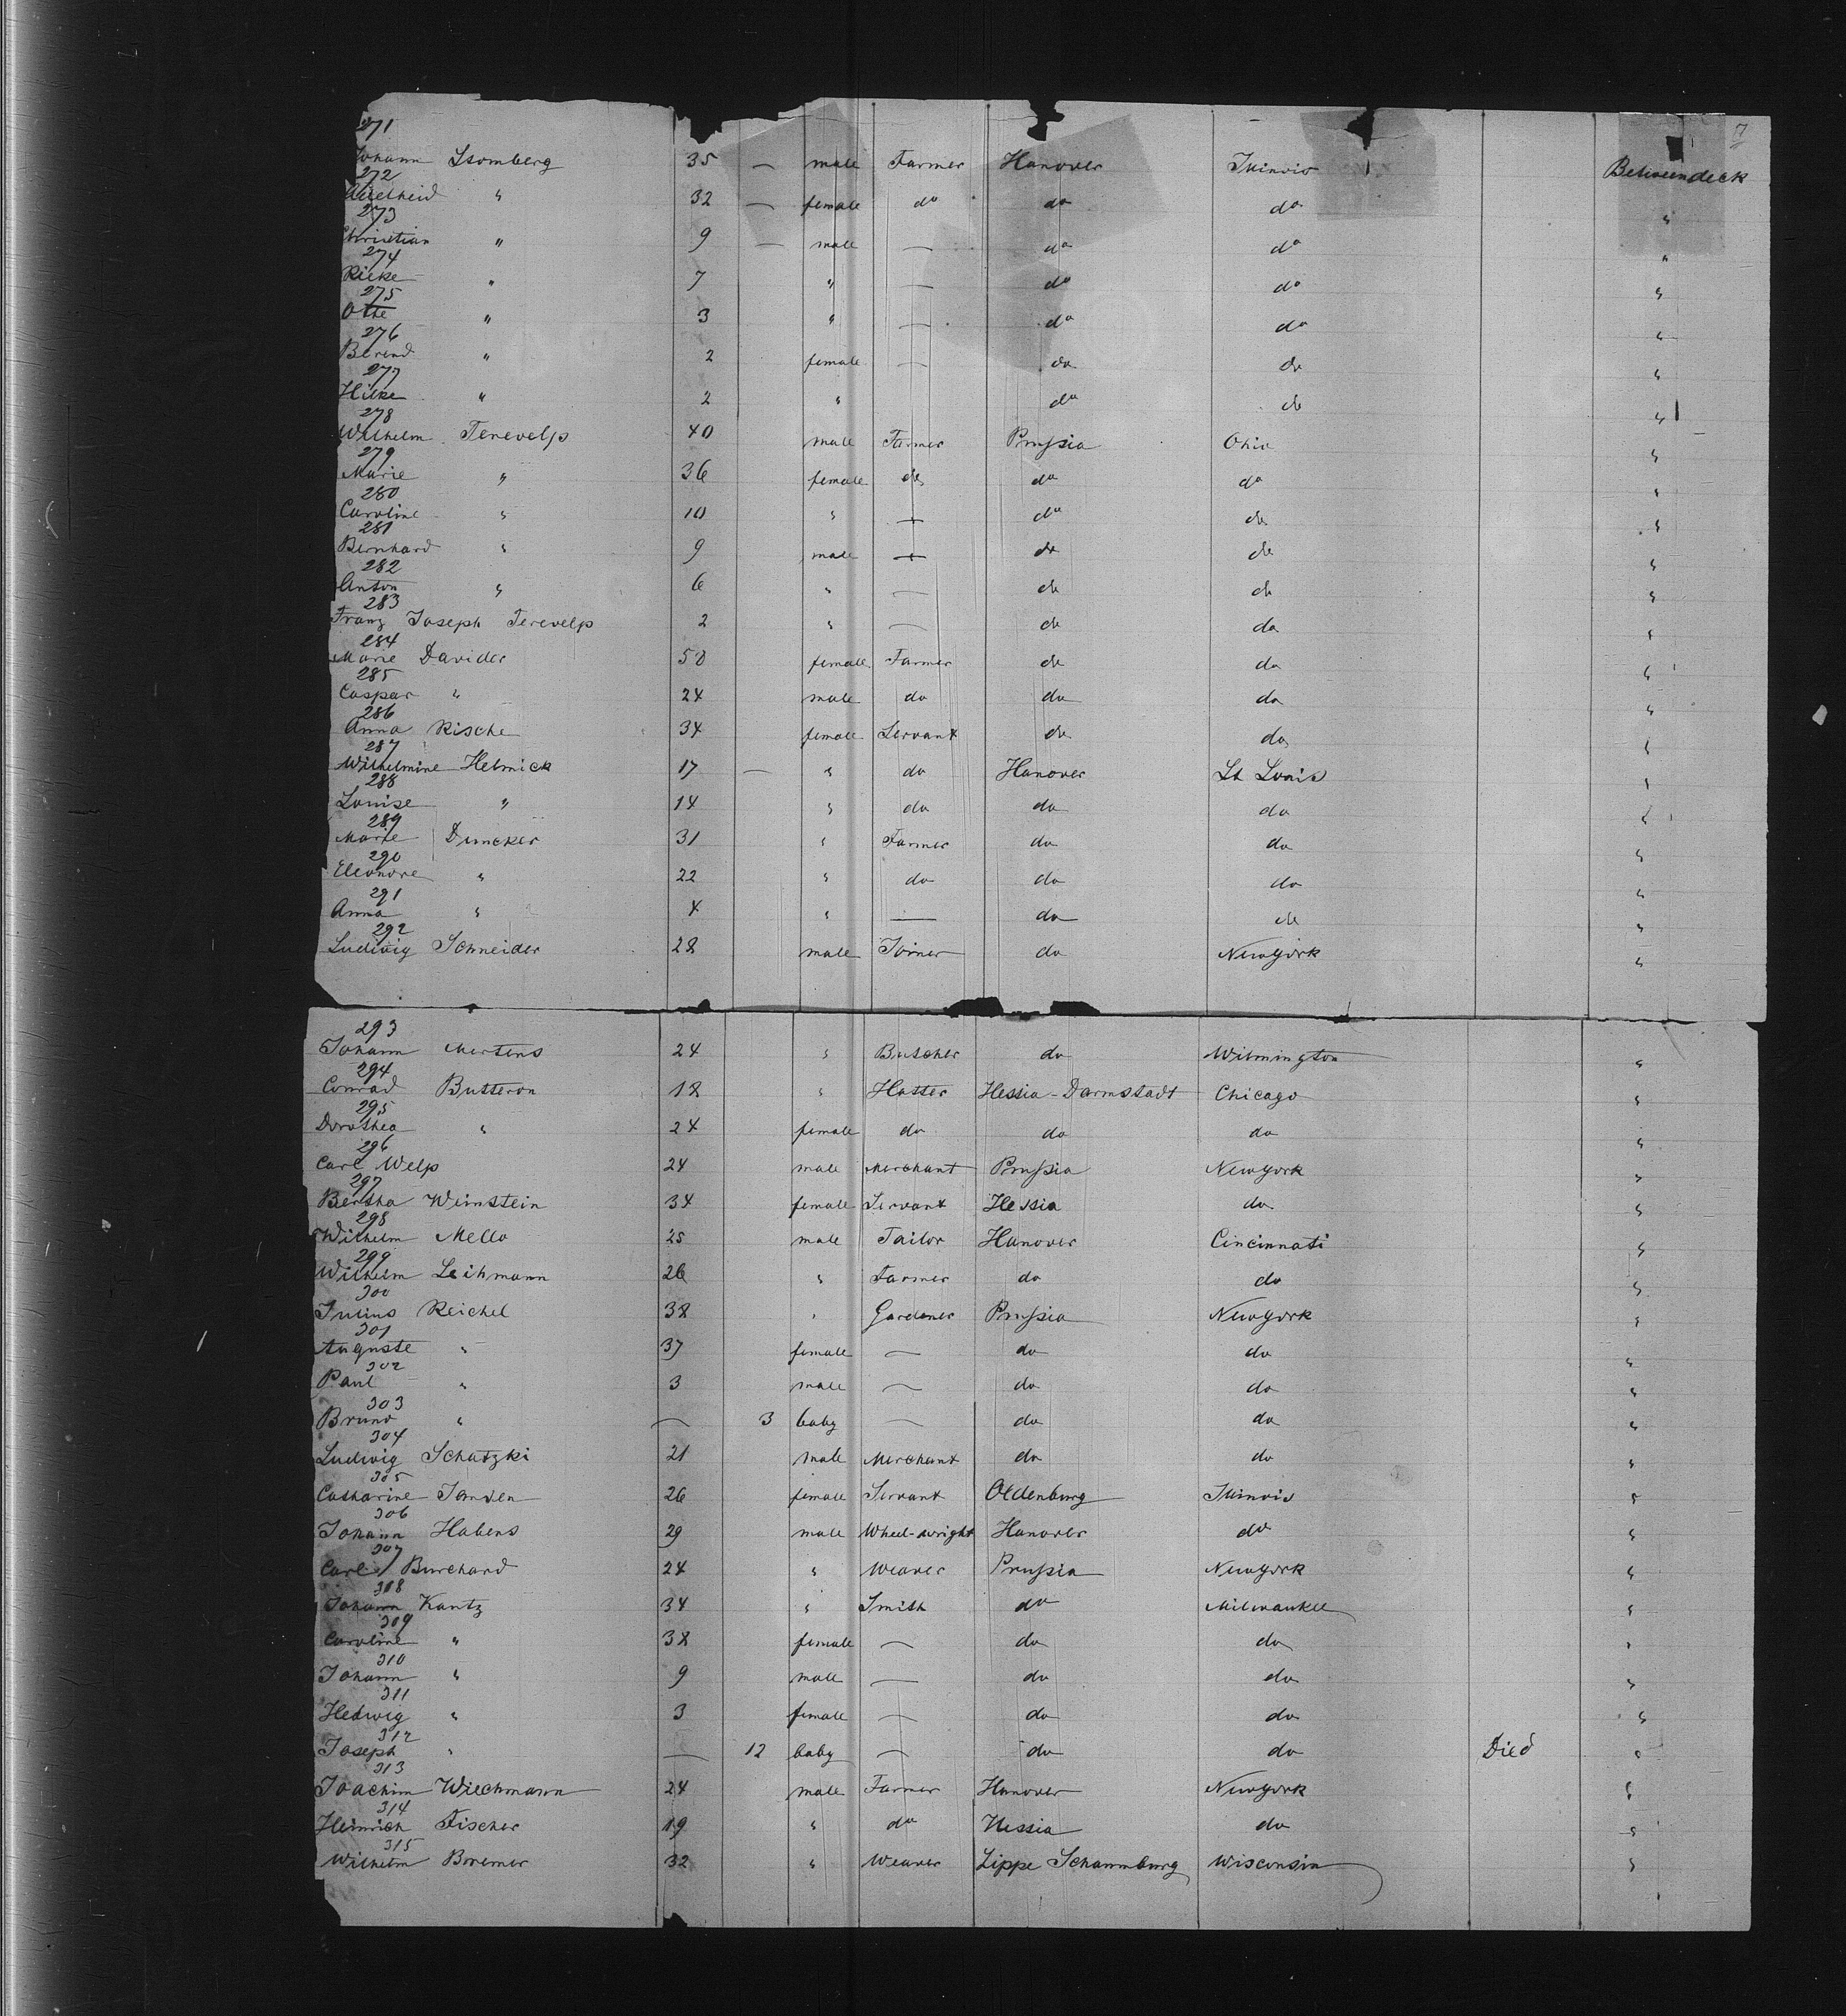 7
271
Johann Isomberg 35 — male Farmer Hanover Illinois Betweendeck
272
Adelheid " 32 — female do do do "
273
Christian " 9 — male — do do "
274
Rieke " 7 " — do do "
275
Otto " 3 " — do do "
276
Berend " 2 female — do do "
277
Hilke " 2 " do do "
278
Wilhelm Terevelp 40 male Farmer Prussia Ohio "
279
Marie " 36 female do do do "
280
Caroline " 10 " — do do "
281
Bernhard " 9 male — do do "
282
Anton " 6 " — do do "
283
Franz Joseph Terevelp 2 " — do do "
284
Marie Davider 50 female Farmer do do "
285
Caspar " 24 male do do do "
286
Anna Rische 34 female Servant do do "
287
Wilhelmine Helmick 17 — " do Hanover St Louis "
288
Louise " 14 " do do do "
289
Marie Duncker 31 " Farmer do do "
290
Eleonore " 22 " do do do "
291
Anna " 4 " — do do "
292
Ludwig Schneider 28 male Joiner do Newyork "
293
Johann Mertens 24 " Butcher do Wilmington "
294
Conrad Butteron 18 " Hatter Hessia-Darmstadt Chicago "
295
Dorothea " 24 female do do do "
296
Carl Welp 24 male Merchant Prussia Newyork "
297
Bertha Weinstein 34 female Servant Hessia do "
298
Wilhelm Mello 25 male Tailor Hanover Cincinnati "
299
Wilhelm Leihmann 26 " Farmer do do "
300
Julius Reichel 38 " Gardener Prussia Newyork "
301
Auguste " 37 female — do do "
302
Paul " 3 male — do do "
303
Bruno " — 3 baby — do do "
304
Ludwig Schatzki 21 male Merchant do do "
305
Catharine Janden 26 female Servant Oldenburg Illinois "
306
Johann Habens 29 male Wheel-wright Hanover do "
307
Carl Burchard 24 " Weaver Prussia Newyork "
308
Johann Kantz 34 " Smith do Milwaukee "
309
Caroline " 38 female — do do "
310
Johann " 9 male — do do "
311
Hedwig " 3 female — do do "
312
Joseph " — 12 baby — do do Died "
313
Joachim Wiechmann 24 male Farmer Hanover Newyork "
314
Heinrich Fischer 19 " do Hessia do "
315
Wilhelm Bremer 32 " Weaver Lippe Schaumburg Wisconsin "